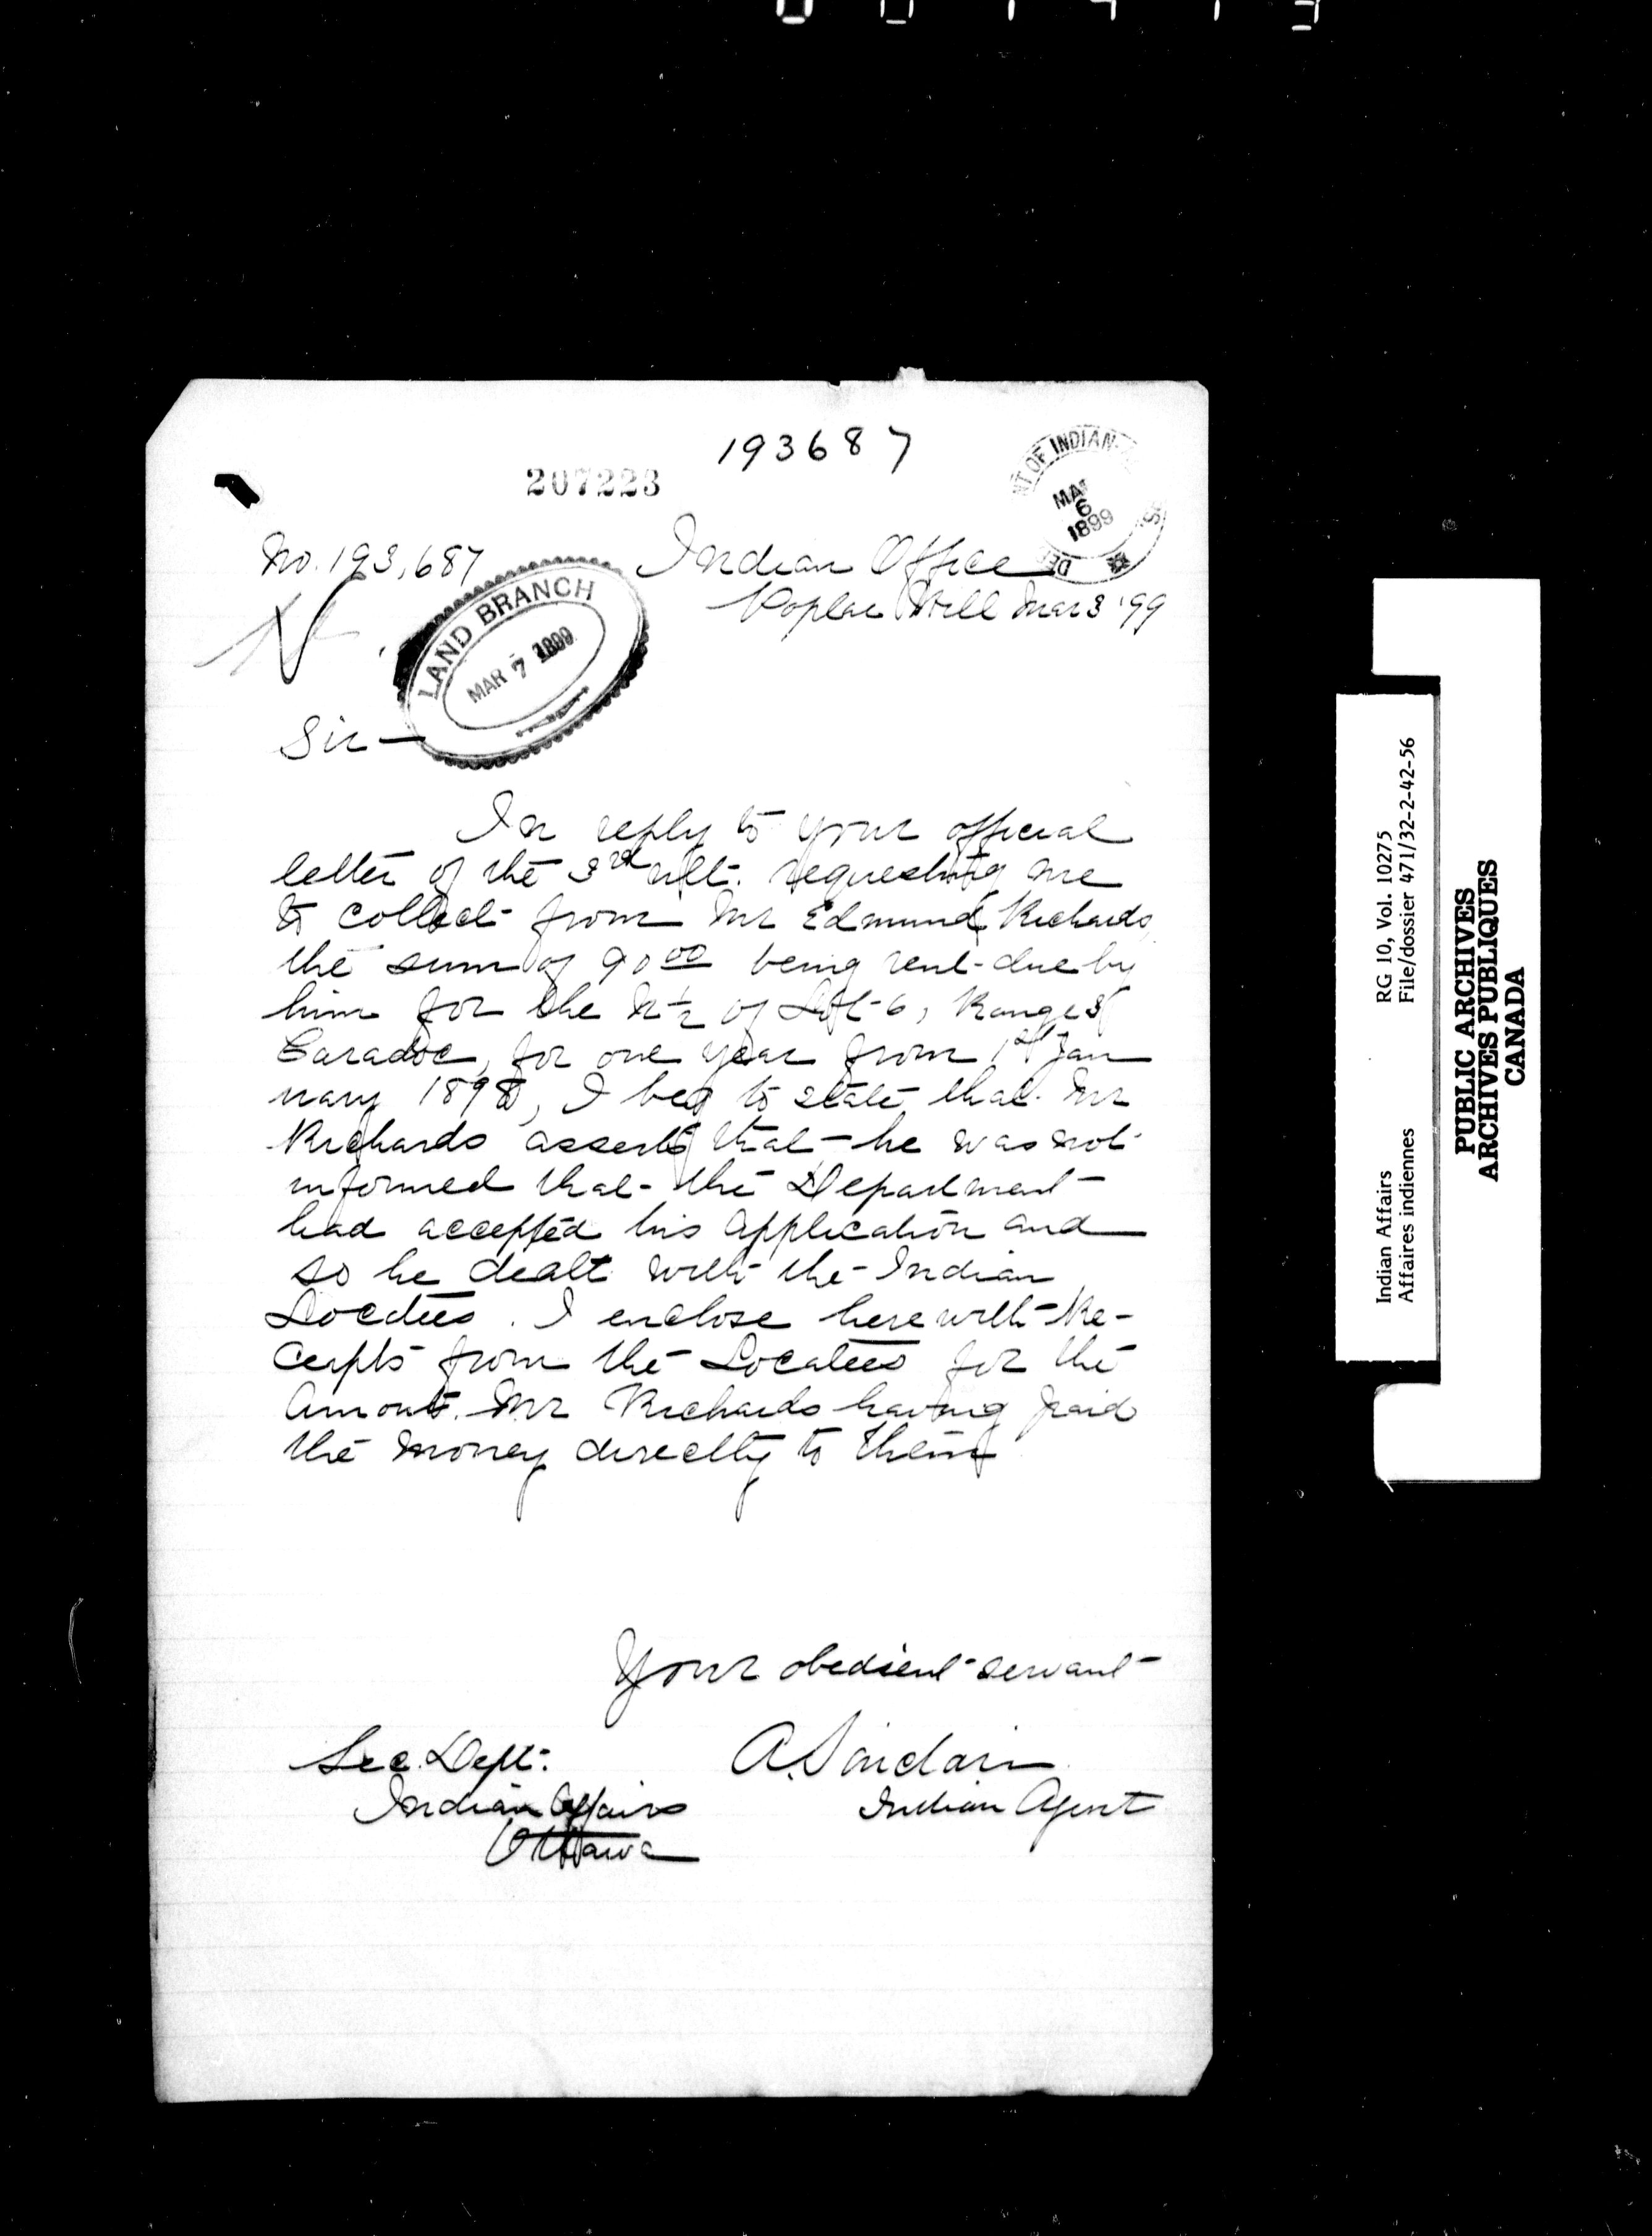 193687
207223
DEPARTMENT OF INDIAN
MAR
6
1899
No. 193,687
Indian Office
Poplar Hill Mar 3 '99
LAND BRANCH
MAR 7 1899
Sir—
In reply to your official
letter of the 3rd ult. requesting me
to collect from Mr Edmund Richards
the sum of 90 00 being rent due by
him for the N ½ of Lot 6, Range 3
Caradoc, for one year from 1st Jan
uary 1898, I beg to state that Mr
Richards asserts that he was not
informed that the Department
had accepted his application and
so he dealt with the Indian
Locatees. I enclose herewith Re-
ceipts from the Locatees for the
Amount. Mr Richards having paid
the money directly to them
Your obedient servant
Sec. Dept.
Indian Affairs
Ottawa
A. Sinclair
Indian Agent
Indian Affairs
Affaires indiennes
RG 10, Vol. 10275
File/dossier 471/32-2-42-56
PUBLIC ARCHIVES
ARCHIVES PUBLIQUES
CANADA